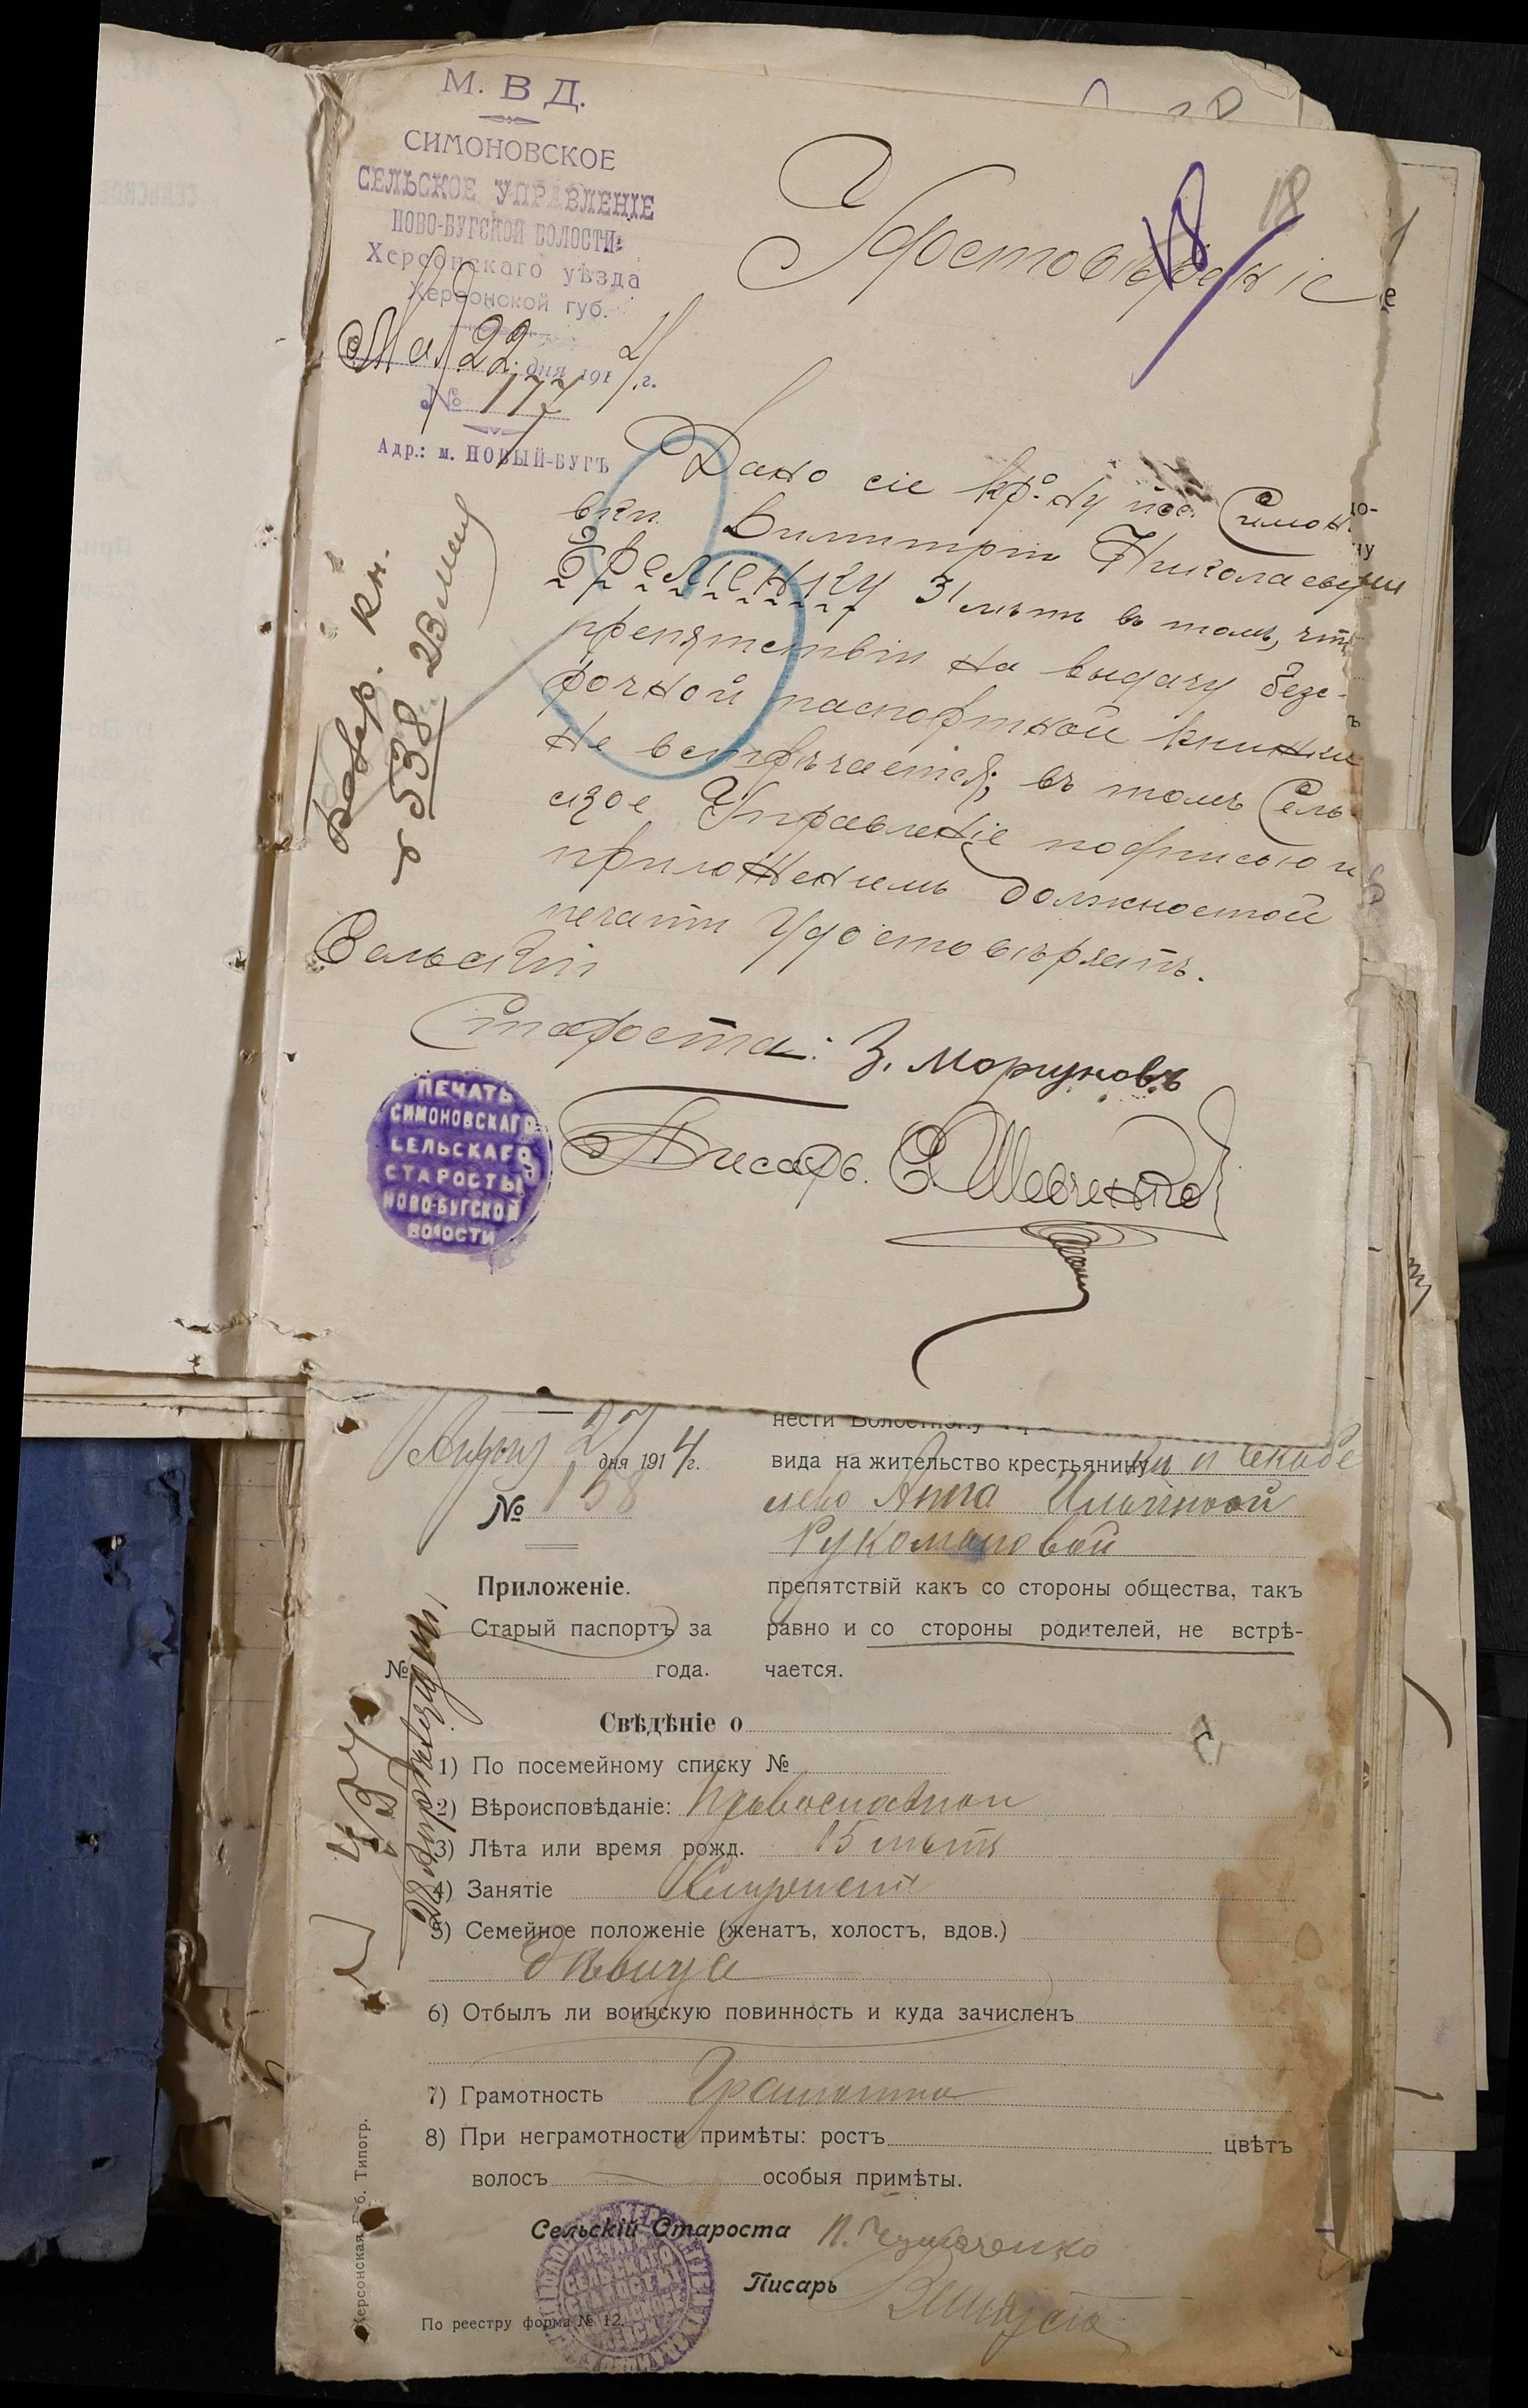 М. В Д.
СИМОНОВСКОЕ
СЕЛЬСКОЕ УПРАВЛЕНІЕ
НОВО-БУГСКОЙ ВОЛОСТИ
Херсонскаго уѣзда
Херсонской губ.
Мая 22 дня 1914 г.
№ 177
Адр.: м. НОВЫЙ-БУГЪ
18
18
Удостовѣреніе
Дано сіе кр-ну пос. Симонов
вки Димитрію Николаевичу
Еременку 31 лѣтъ въ томъ, что
препятствіи на выдачу безс-
рочной паспортной книжки
не встрѣчается; въ томъ Сель
ское Управленіе подписью и
приложеніемъ должностной
печати удостовѣряетъ.
Сельскій
Староста: З. Моргуновъ
Писарь. Е Шевченко
538 23 мая
кн.
ПЕЧАТЬ
СИМОНОВСКАГО
СЕЛЬСКАГО
СТАРОСТЫ
НОВО-БУГСКОЙ
ВОЛОСТИ
нести Волостному
27 дня 1914 г.
вида на жительство крестьянину
№ 158
Анна Ильиной
Рукомановой
Приложеніе.
препятствій какъ со стороны общества, такъ
Старый паспортъ за
равно и со стороны родителей, не встрѣ-
№ года.
чается.
Свѣдѣніе о
1) По посемейному списку №
2) Вѣроисповѣданіе: Православной
3) Лѣта или время рожд. 15 лѣтъ
4) Занятіе
5) Семейное положеніе (женатъ, холостъ, вдов.)
дѣвица
6) Отбылъ ли воинскую повинность и куда зачисленъ
7) Грамотность Грамотна
8) При неграмотности примѣты: ростъ цвѣтъ
волосъ особыя примѣты.
Сельскій Староста
Писарь
По реестру форма № 12.
Херсонская Губ. Типогр.